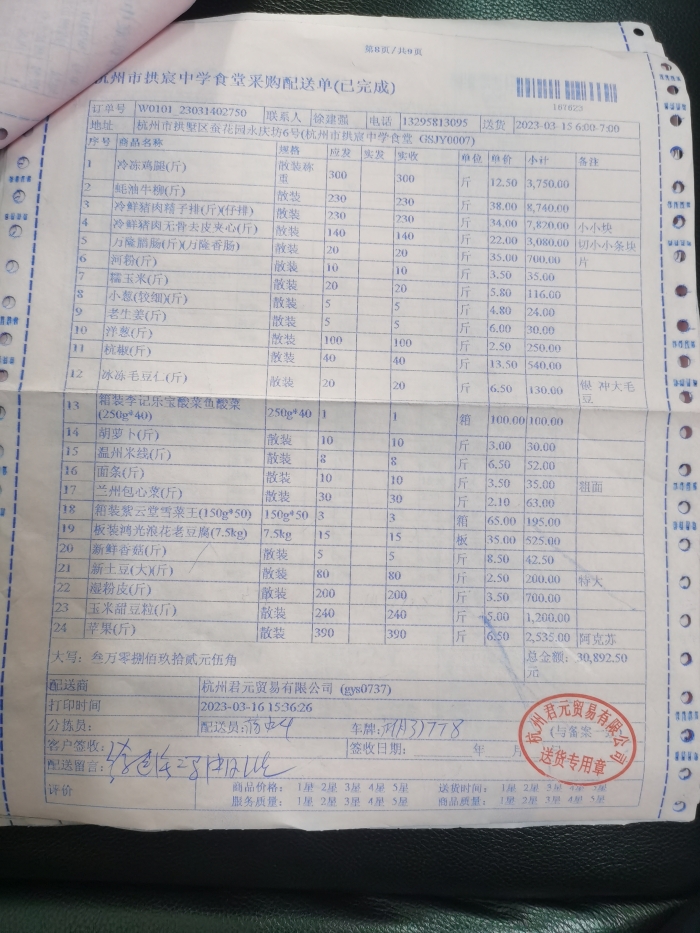 第8页/共9页
杭州市拱宸中学食堂采购配送单(已完成)
187623
订单号 W0101_23031402750 联系人 徐建强 电话 13295813095 送货 2023-03-15 6:00-7:00
地址 杭州市拱墅区蚕花园永庆坊6号(杭州市拱宸中学食堂 GSJY0007)
序号 商品名称 规格 应发 实发 实收 单位 单价 小计 备注
1 冷冻鸡腿(斤) 散装称重 300 300 斤 12.50 3,750.00
2 蚝油牛柳(斤) 散装 230 230 斤 38.00 8,740.00
3 冷鲜猪肉精子排(斤)(仔排) 散装 230 230 斤 34.00 7,820.00 小小块
4 冷鲜猪肉无骨去皮夹心(斤) 散装 140 140 斤 22.00 3,080.00 切小小条块
5 万隆腊肠(斤)(万隆香肠) 散装 20 20 斤 35.00 700.00 片
6 河粉(斤) 散装 10 10 斤 3.50 35.00
7 糯玉米(斤) 散装 20 20 斤 5.80 116.00
8 小葱(较细)(斤) 散装 5 5 斤 4.80 24.00
9 老生姜(斤) 散装 5 5 斤 6.00 30.00
10 洋葱(斤) 散装 100 100 斤 2.50 250.00
11 杭椒(斤) 散装 40 40 斤 13.50 540.00
12 冰冻毛豆仁(斤) 散装 20 20 斤 6.50 130.00 银 冲大毛豆
13 箱装李记乐宝酸菜鱼酸菜(250g*40) 250g*40 1 1 箱 100.00 100.00
14 胡萝卜(斤) 散装 10 10 斤 3.00 30.00
15 温州米线(斤) 散装 8 8 斤 6.50 52.00
16 面条(斤) 散装 10 10 斤 3.50 35.00 粗面
17 兰州包心菜(斤) 散装 30 30 斤 2.10 63.00
18 箱装紫云堂雪菜王(150g*50) 150g*50 3 3 箱 65.00 195.00
19 板装鸿光浪花老豆腐(7.5kg) 7.5kg 15 15 板 35.00 525.00
20 新鲜香菇(斤) 散装 5 5 斤 8.50 42.50
21 新土豆(大)(斤) 散装 80 80 斤 2.50 200.00 特大
22 湿粉皮(斤) 散装 200 200 斤 3.50 700.00
23 玉米甜豆粒(斤) 散装 240 240 斤 5.00 1,200.00
24 苹果(斤) 散装 390 390 斤 6.50 2,535.00 阿克苏
大写：叁万零捌佰玖拾贰元伍角 总金额：30,892.50元
配送商 杭州君元贸易有限公司 (gys0737)
打印时间 2023-03-16 15:36:26
分拣员： 配送员： 车牌： (与备案一
客户签收： 签收日期： 年 月
配送留言：
杭州君元贸易有限公司
送货专用章
评价 商品价格： 1星 2星 3星 4星 5星 送货时间： 1星 2星 3星 4星 5星
服务质量： 1星 2星 3星 4星 5星 商品质量： 1星 2星 3星 4星 5星